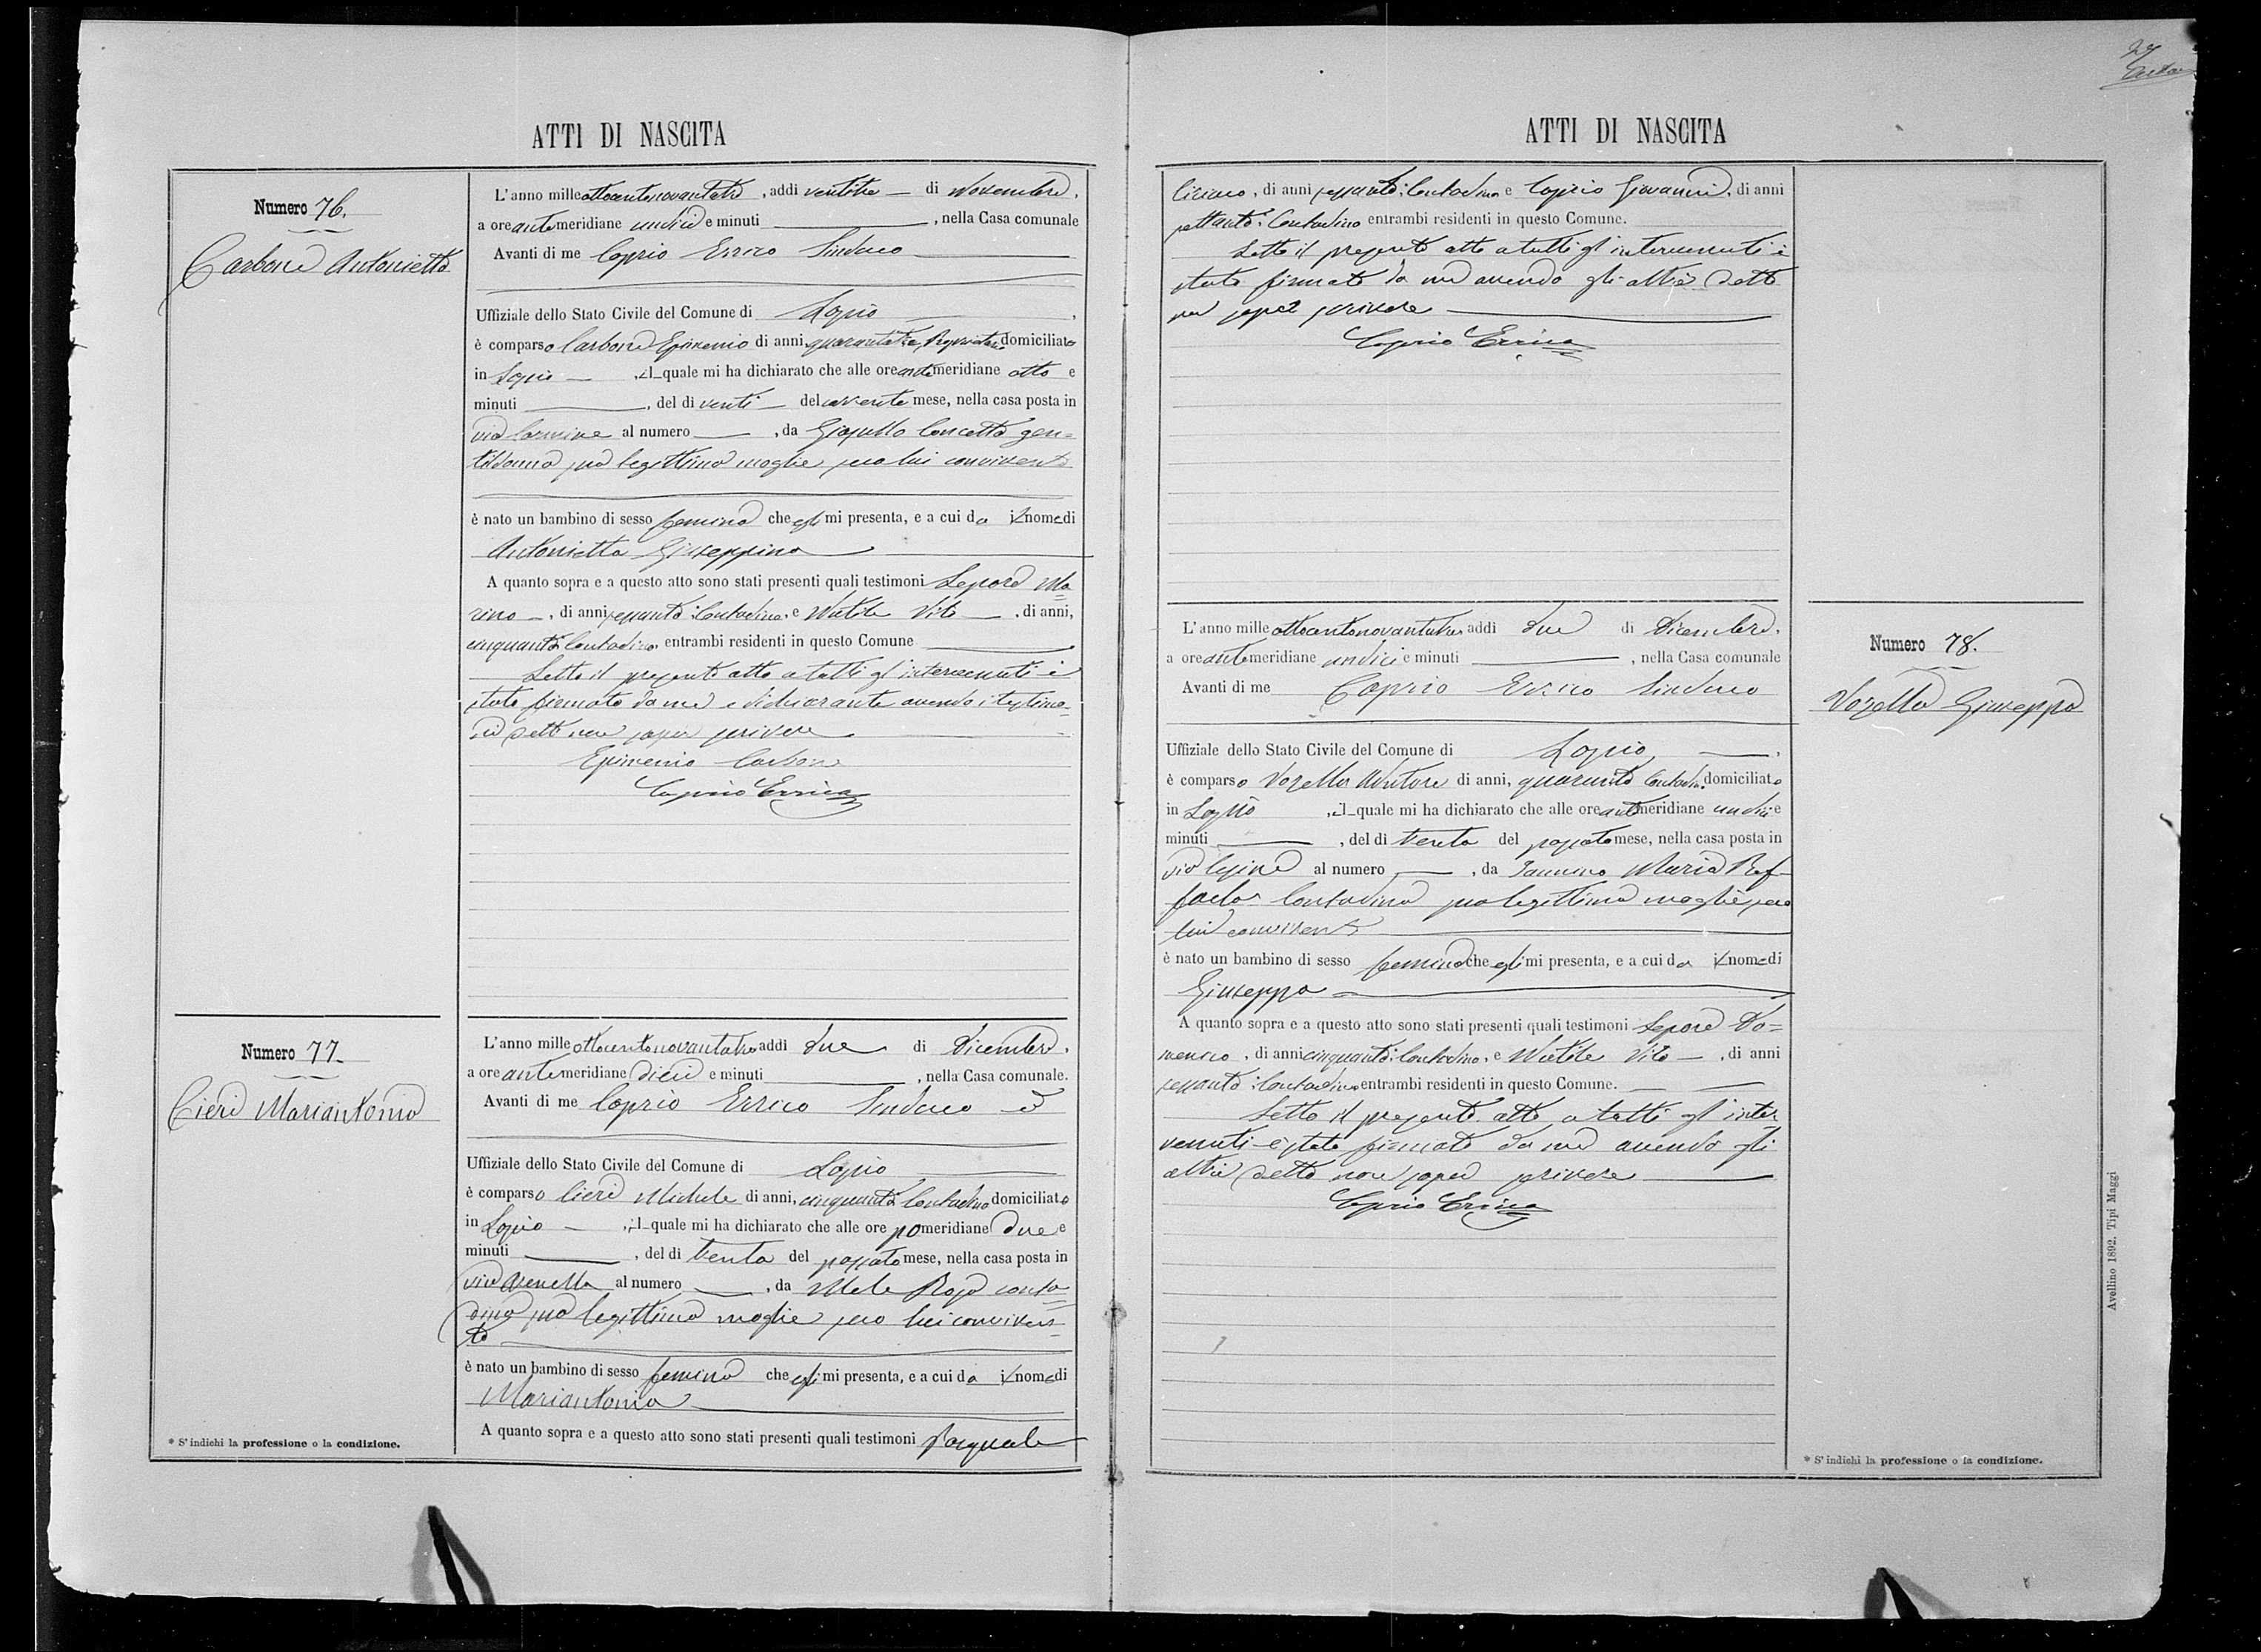 ATTI DI NASCITA
Numero 76.
Carbone Antonietta
L'anno mille ottocentonovantatre, addì ventitre di Novembre,
a ore antemeridiane undici e minuti, nella Casa comunale
Avanti di me Caprio Errico Sindaco
Uffiziale dello Stato Civile del Comune di Lapio,
è comparso Carbone Epimenio di anni quarantatre, Proprietario domiciliato
in Lapio, il quale mi ha dichiarato che alle ore antimeridiane otto e
minuti, del dì venti del corrente mese, nella casa posta in
via Carmine al numero, da Concetta gen=
tildonna sua legittima moglie seco lui convivente
è nato un bambino di sesso femmino che egli mi presenta, e a cui da il nome di
Antonietta Giuseppina
A quanto sopra e a questo atto sono stati presenti quali testimoni Lepore Ma
rino, di anni sessanta: Contadino, e Vito, di anni,
cinquanta Contadino entrambi residenti in questo Comune
Letto il presente atto a tutti gl'intervenuti è
stato firmato da me e dichiarante avendo i testimo=
nii detto non saper scrivere
Epimenio Carbone
Caprio Errico
Numero 77.
Cieri Mariantonia
L'anno mille ottocentonovantatre addì due di Dicembre,
a ore antemeridiane dieci e minuti, nella Casa comunale.
Avanti di me Caprio Errico Sindaco
Uffiziale dello Stato Civile del Comune di Lapio
è comparso Cieri Michele di anni, cinquanta Contadino domiciliato
in Lapio, il quale mi ha dichiarato che alle ore pomeridiane due e
minuti, del dì trenta del passato mese, nella casa posta in
via al numero, da Mele Rosa conta
dina sua legittima moglie seco lui conviven
te
è nato un bambino di sesso femmino che egli mi presenta, e a cui da il nome di
Mariantonia
A quanto sopra e a questo atto sono stati presenti quali testimoni Pasquale
* S'indichi la professione o la condizione.
ATTI DI NASCITA
Ciriaco, di anni sessanta: Contadino e Caprio Giovanni, di anni
settanta: Contadino entrambi residenti in questo Comune.
Letto il presente atto a tutti gl'intervenuti è
stato firmato da me avendo gli altri detto
non saper scrivere
Caprio Errico
Numero 78.
Vozella Giuseppa
L'anno mille ottocentonovantatre addì due di Dicembre,
a ore antemeridiane undici e minuti, nella Casa comunale
Avanti di me Caprio Errico Sindaco
Uffiziale dello Stato Civile del Comune di Lapio,
è comparso Vozella di anni, quaranta Contadino domiciliato
in Lapio, il quale mi ha dichiarato che alle ore antimeridiane undici e
minuti, del dì trenta del passato mese, nella casa posta in
via al numero, da Iannino Maria Raf
faela Contadina sua legittima moglie seco
lui convivente
è nato un bambino di sesso femmino che egli mi presenta, e a cui da il nome di
Giuseppa
A quanto sopra e a questo atto sono stati presenti quali testimoni Lepore Do=
menico, di anni cinquanta: Contadino, e Vito, di anni
sessanta: Contadino entrambi residenti in questo Comune.
Letto il presente atto a tutti gl'inter
venuti è stato firmato da me avendo gli
altri detto non saper scrivere
Caprio Errico
* S'indichi la professione o la condizione.
Avellino 1892. Tipi Maggi